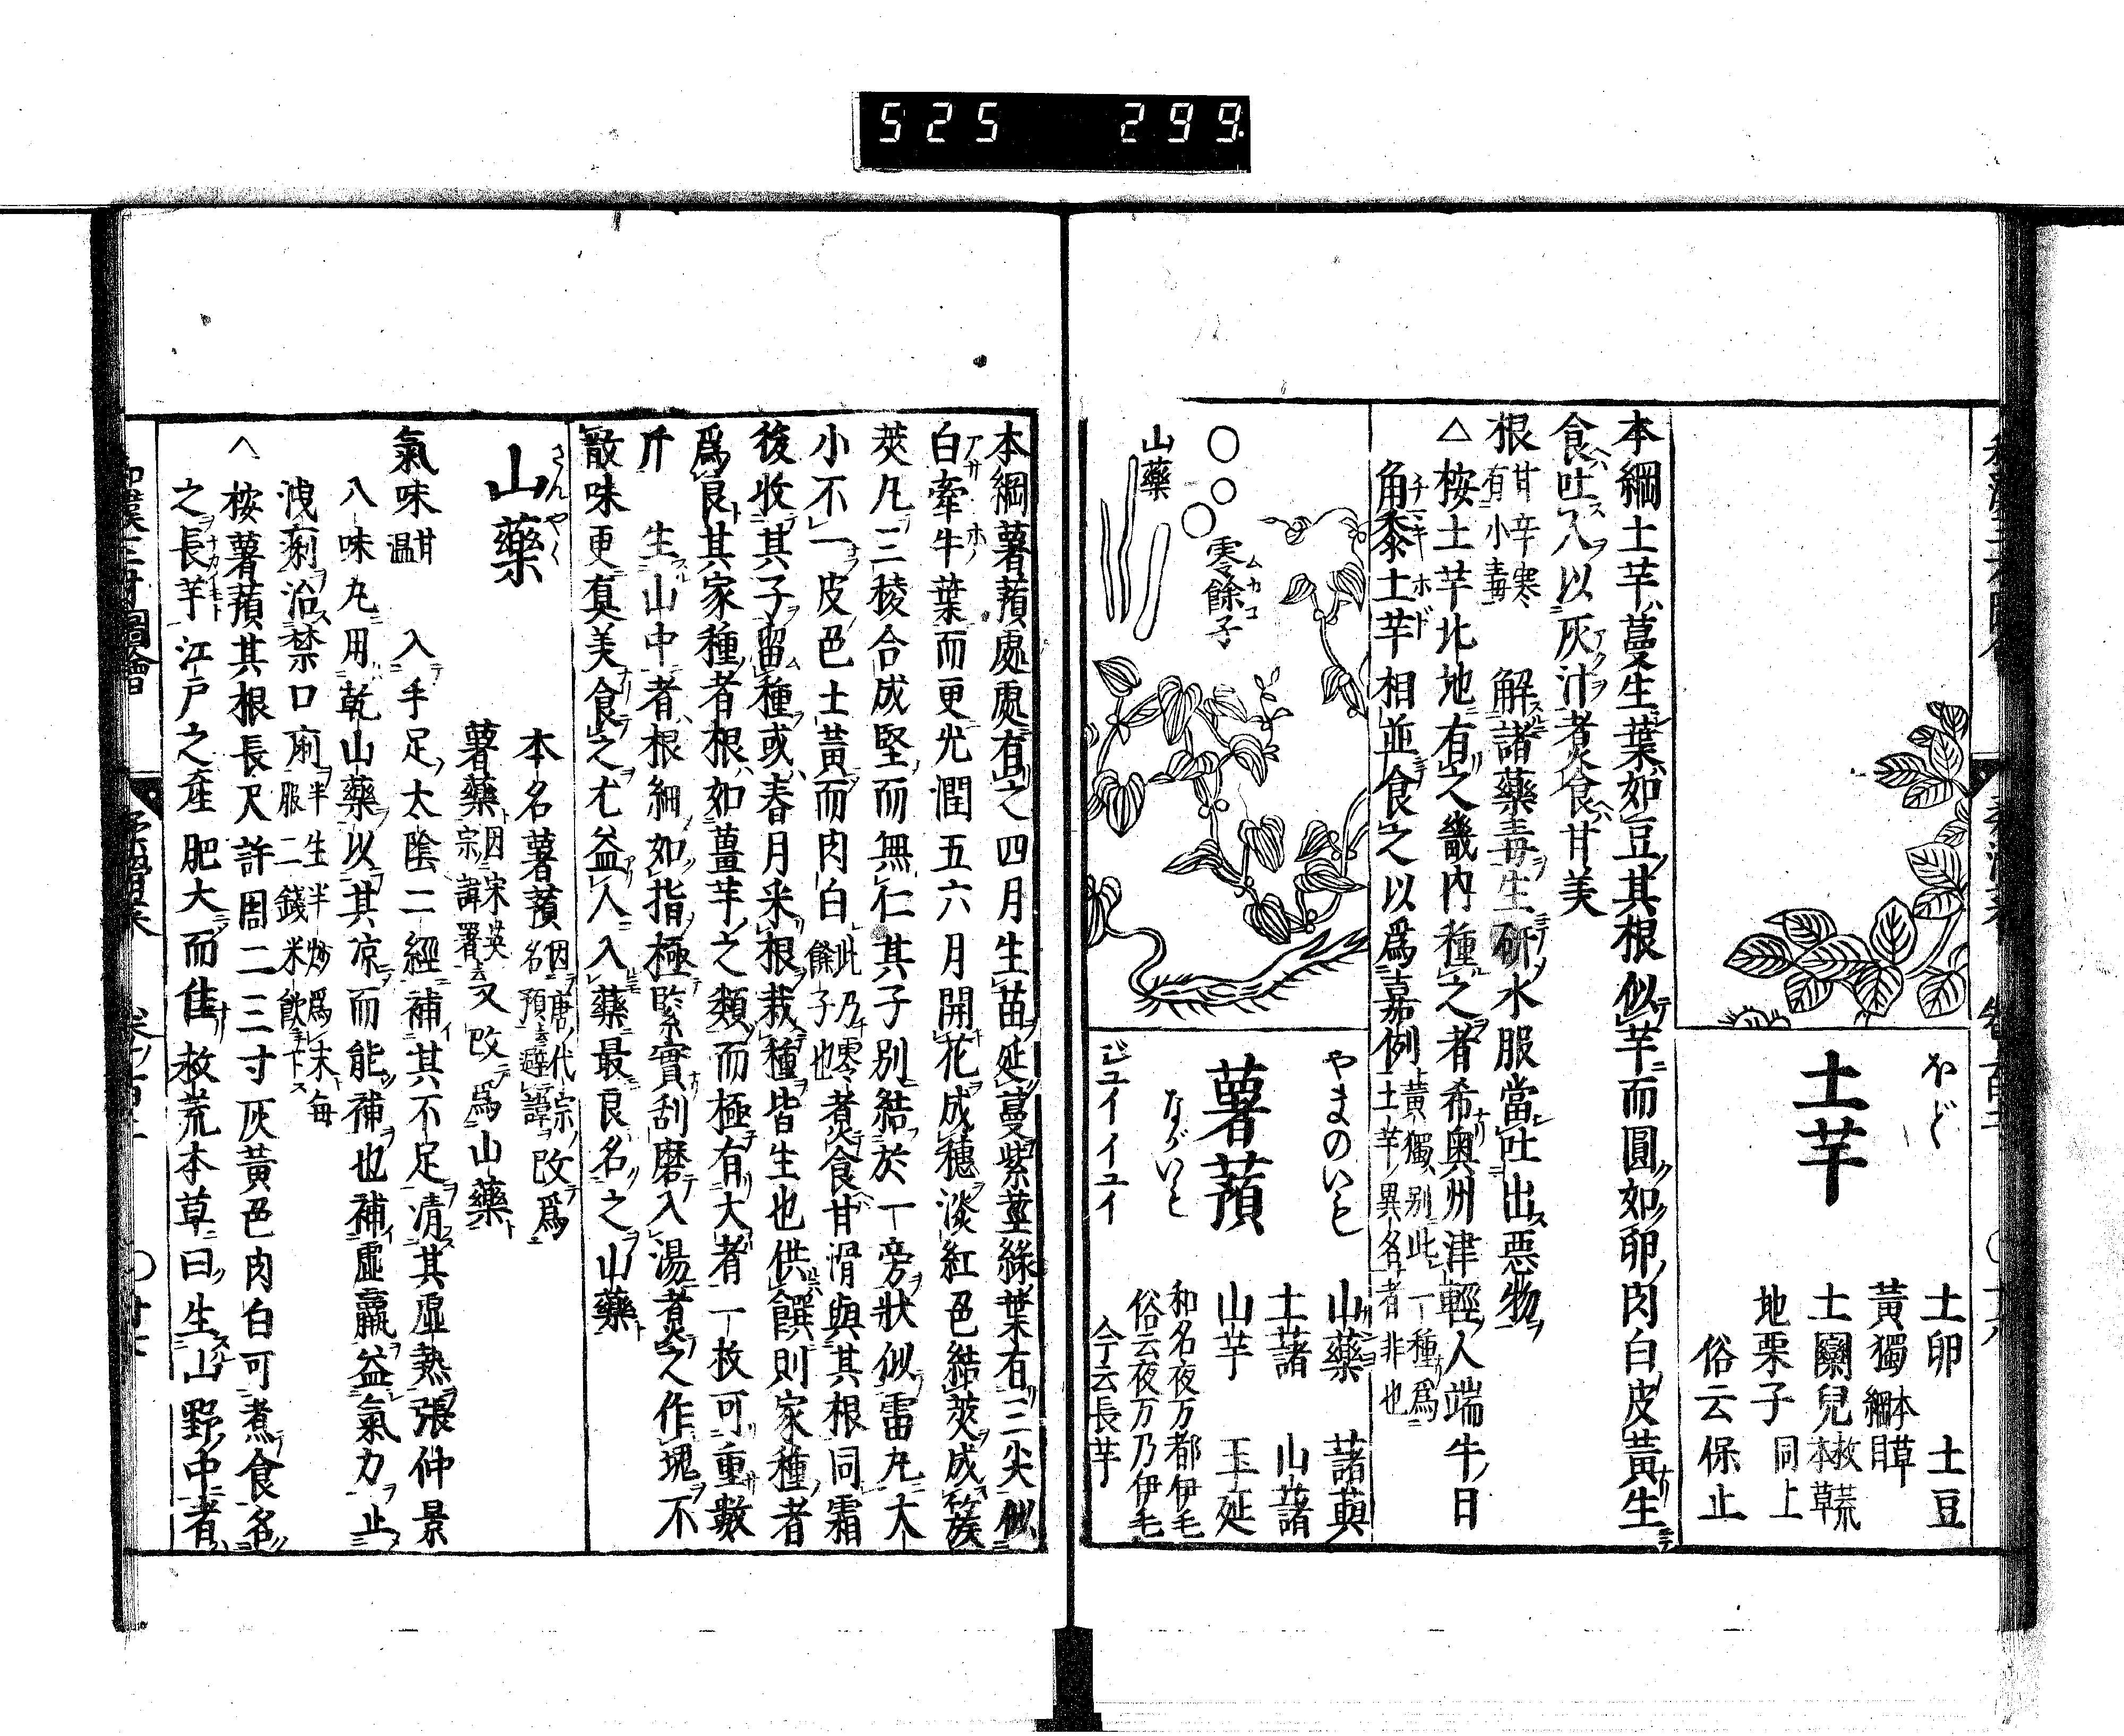 525 299
ほど
土芋
土卵 土豆
黃獨 本草綱目
土欒兒 救荒本草
地栗子 同上
俗云保止
本綱土芋蔓生葉如豆其根似芋而圓如卵肉白皮黃生
食吐人以灰汁煑食甘美
根 甘辛寒有小毒 解諸藥毒生研水服當吐出惡物
△桉土芋北地有之畿内種之者希奥州津輕人端午日
角黍土芋相並食之以爲嘉例 黃獨別此一種爲土芋異名者非也
山藥
零餘子
ムカコ
やまのいも
薯蕷
ながいも
ジユイ イユイ
山藥 藷藇
土藷 山藷
山芋 玉延
和名夜万都伊毛
俗云夜万乃伊毛
今云長芋
本綱薯蕷處處有之四月生苗延蔓紫莖綠葉有三尖似
白牽牛葉而更光潤五六月開花成穗淡紅色結莢成簇
莢凡三稜合成堅而無仁其子別結於一旁狀似雷丸大
小不一皮色土黃而肉白 此乃零餘子也 煑食甘滑與其根同霜
後收其子畱種或春月采根栽種皆生也供饌則家種者
爲良其家種者根如薑芋之類而極有大者一枚可重數
斤 生山中者根細如指極緊實刮磨入湯煑之作塊不
散味更眞美食之尤益人入藥最良名之山藥
さんやく
山藥
本名薯蕷 因唐代宗名預避諱 改爲
薯藥 因宋英宗諱署 又改爲山藥
氣味 甘温 入手足太陰二經補其不足淸其虛熱張仲景
八味丸用乾山藥以其凉而能補也補虛羸益氣力止
洩痢治禁口痢 半生半炒爲末每服二錢米飮下
桉薯蕷其根長尺許周二三寸灰黃色肉白可煮食名
之長芋江戸之產肥大而佳救荒本草曰生山野中者